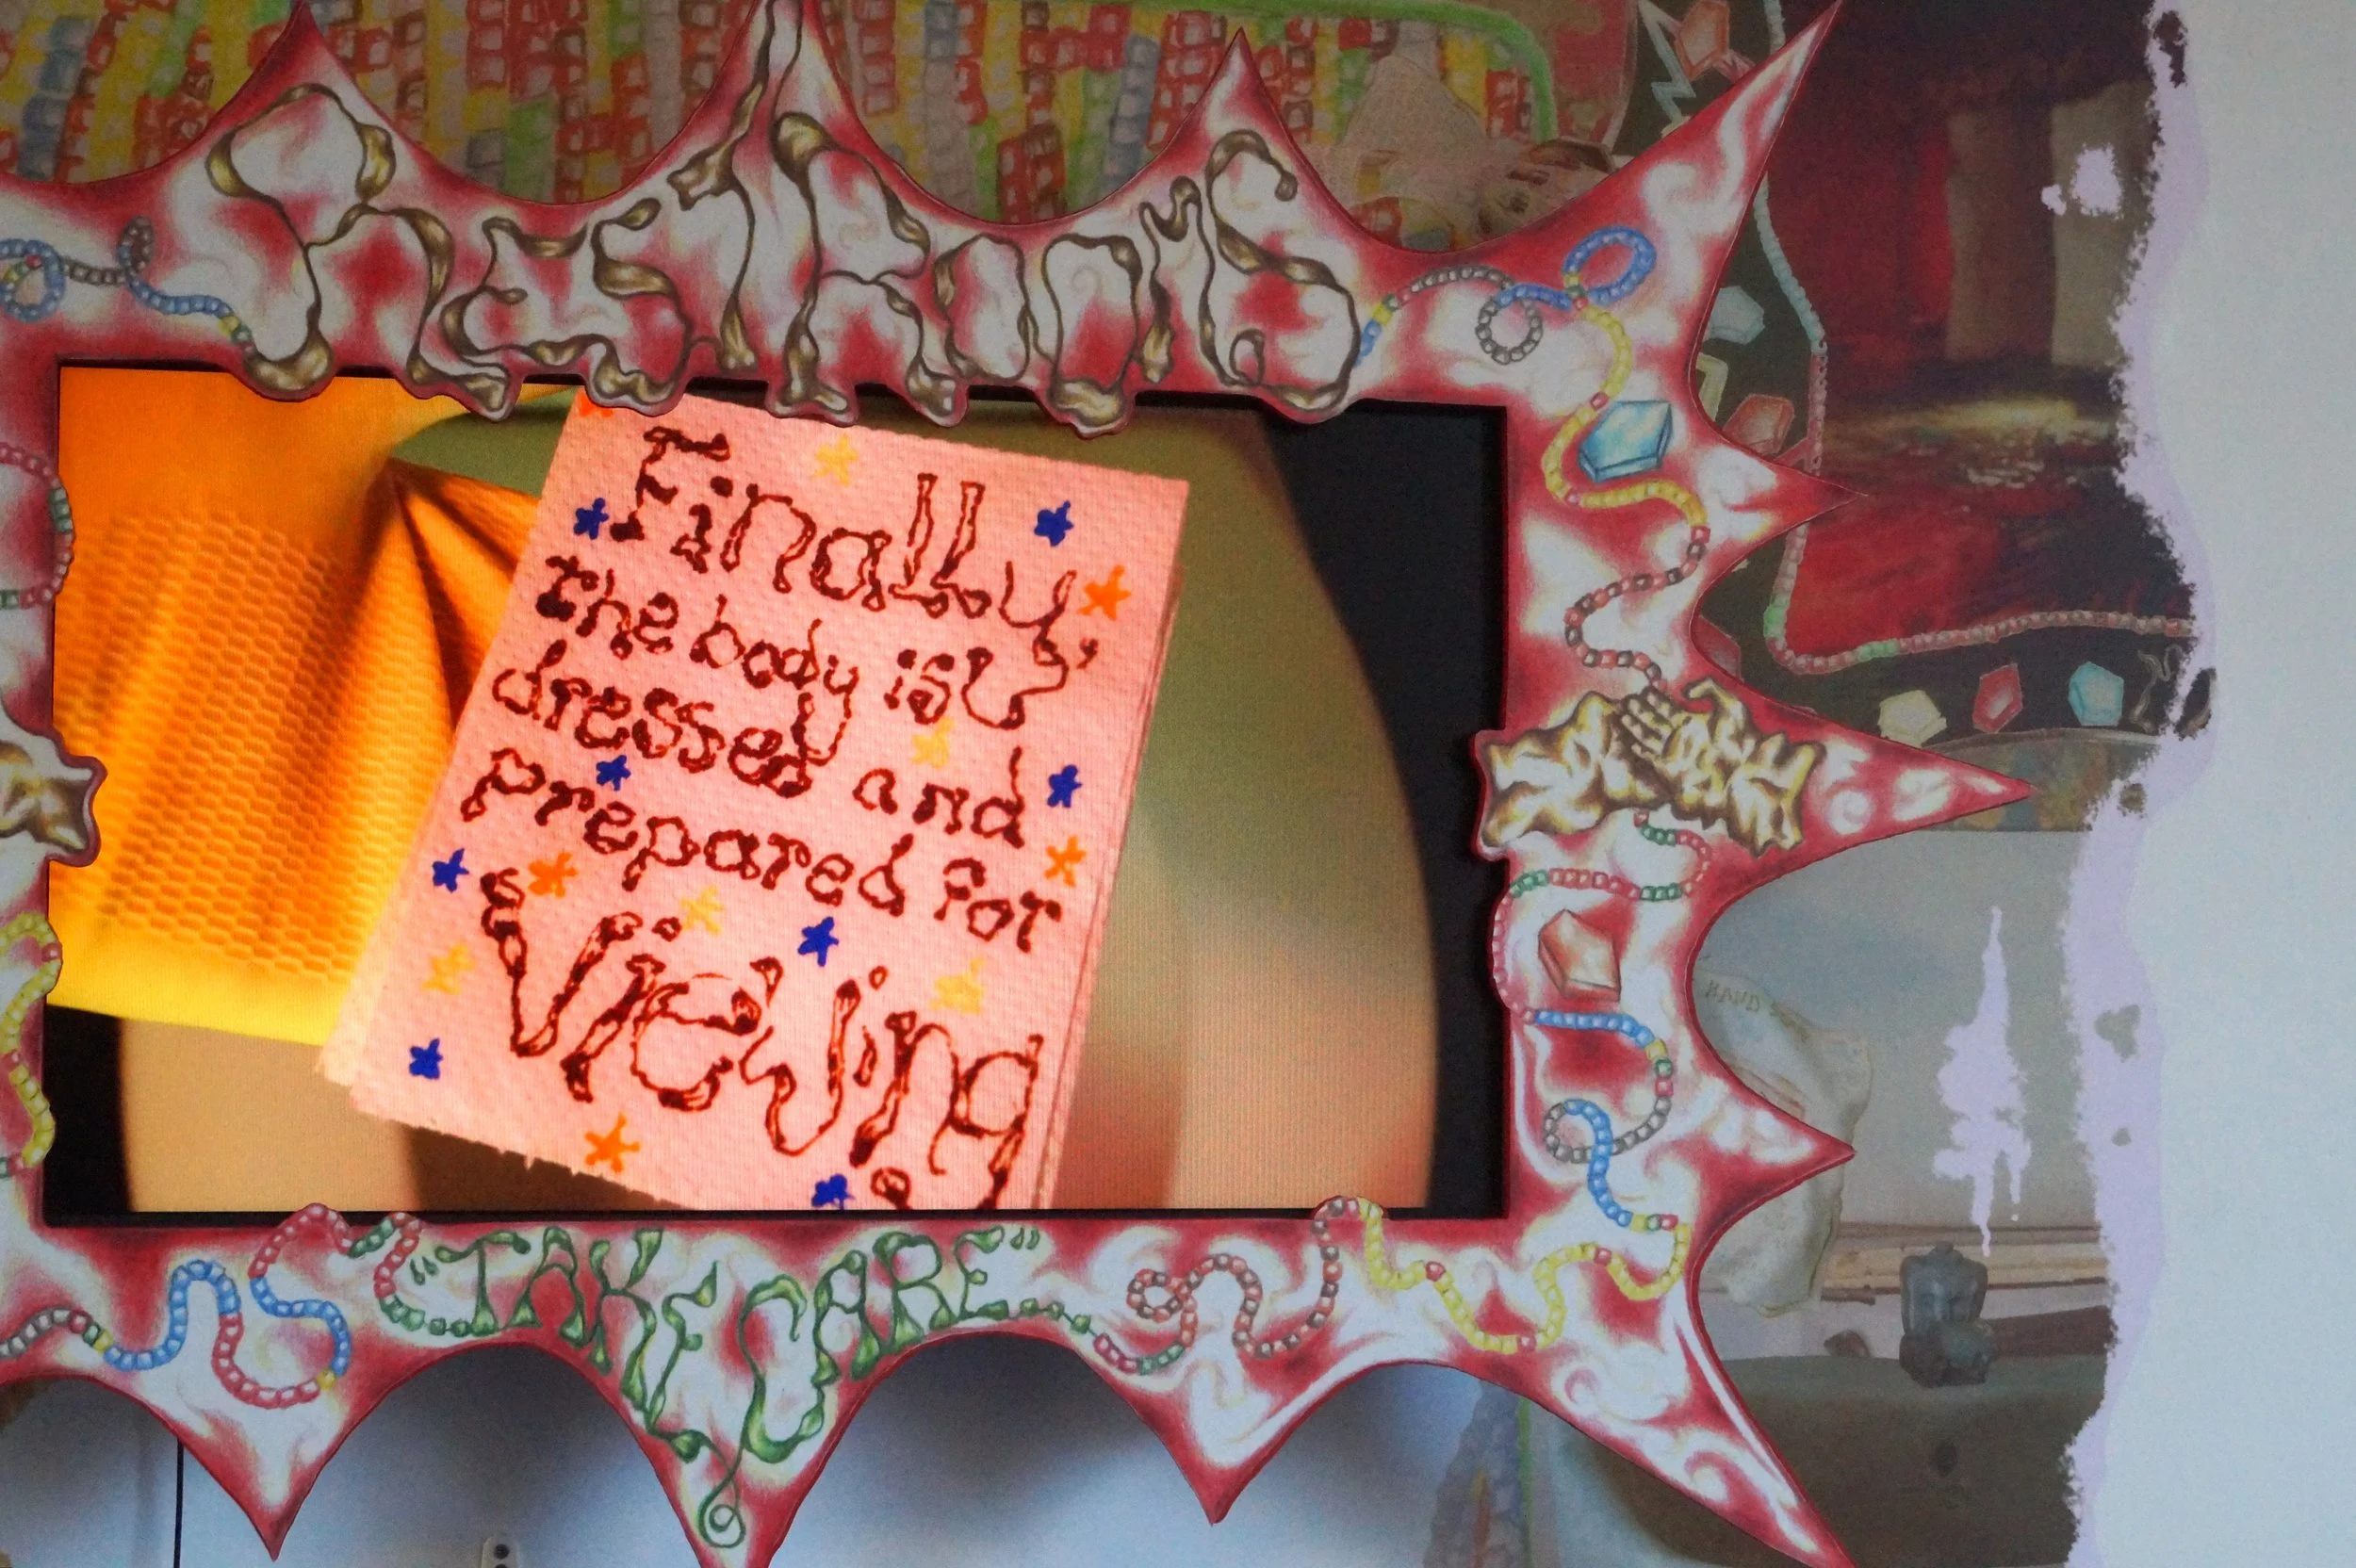 RESTROOMS
Finally,
the body is
dressed and
prepared for
Viewing
"TAKE CARE"
HAND